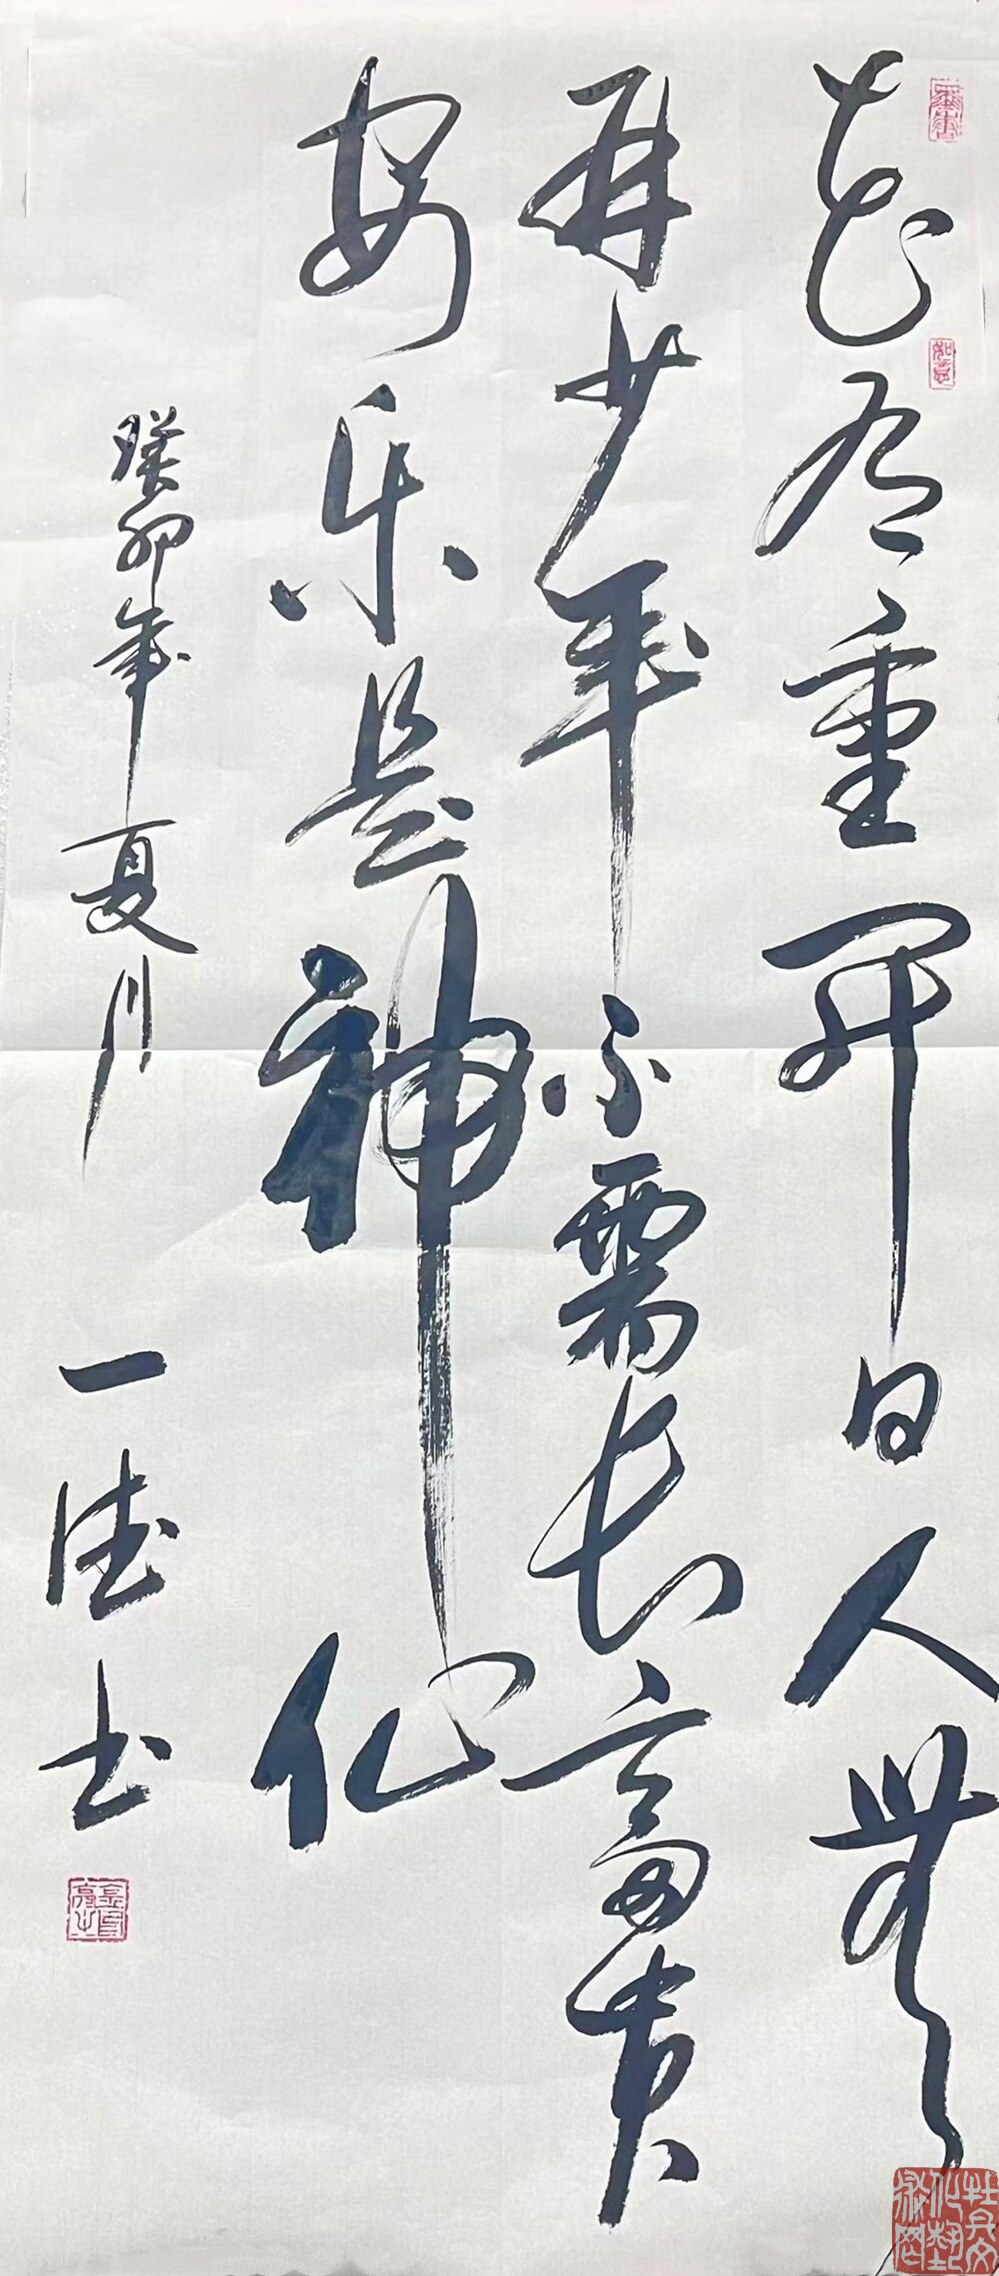 花有重开日人无
再少年不需长富贵
安乐是神仙
癸卯年夏月
一德书
如意